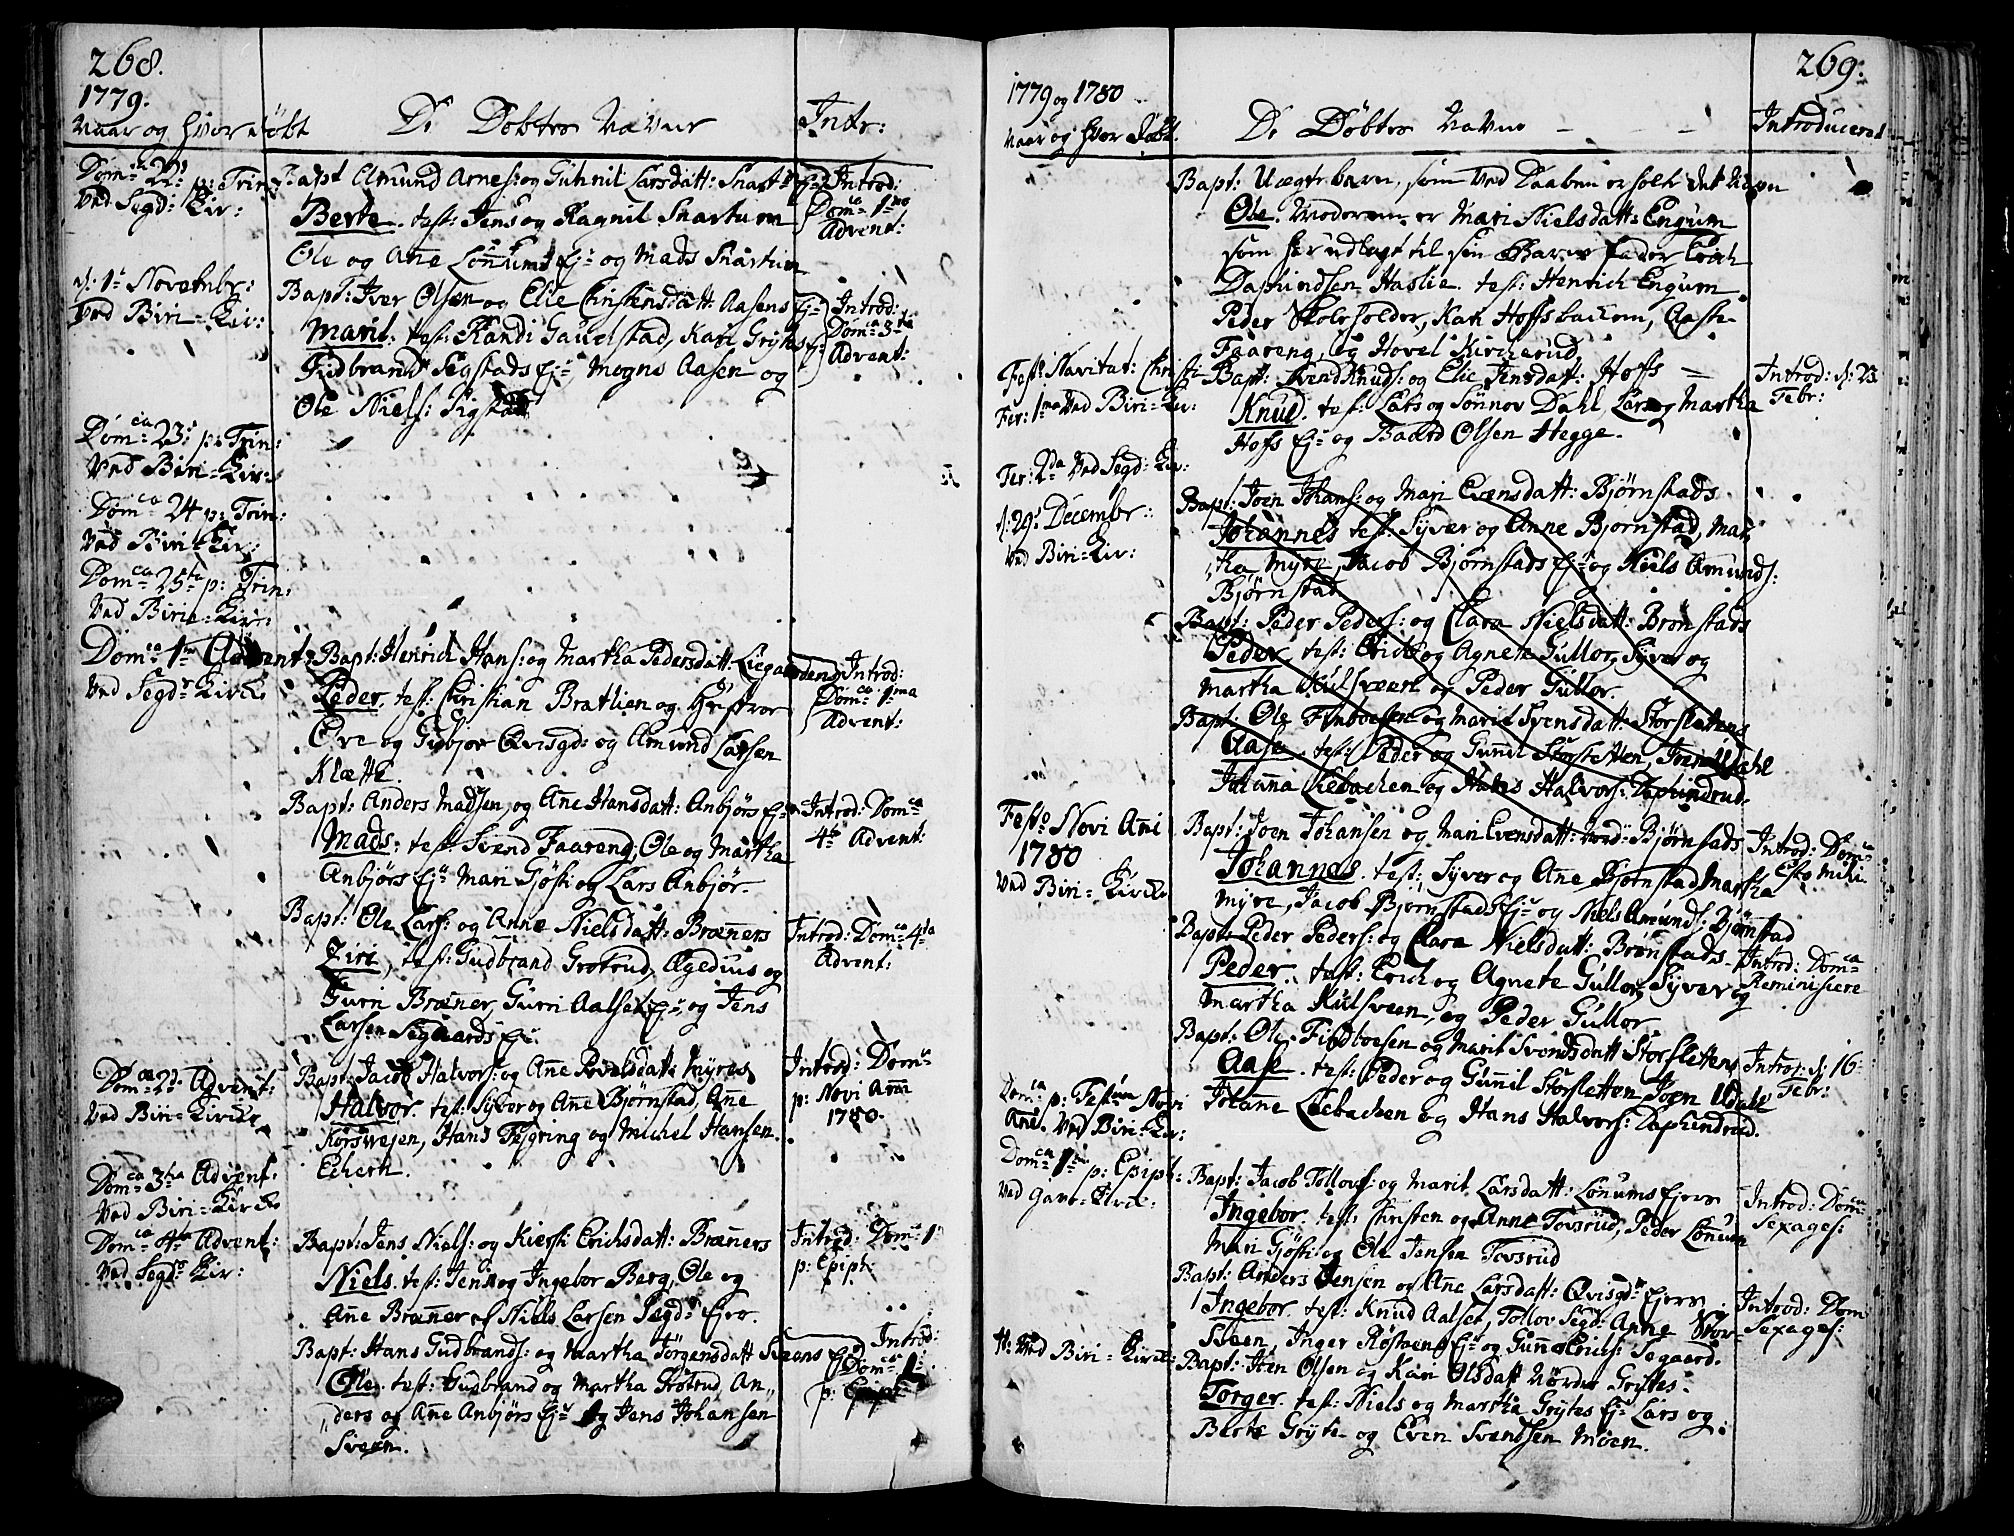 268.
1779.
Naar og hvor døbt
De Døbtes Navne
Intr:
Domca 22de p: Trin:
Ved Segd: Kir:
Bapt Amund Arnes: og Guhnil Larsdatt: Snart
Berte. test: Jens og Ragnil Snartum
Ole og Ane Lønnums Ej: og Mads Snartum
Introd:
Domca 1ma
Advent:
d: 1te Novembr:
Ved Biri=Kir:
Bapt: Iver Olsen og Elie Christensdatt: Aasens Ej:
Marit. test: Randi Gaukelstad, Kari Grytes Ej:
Gudbrand Sigstads Ej: Mogns Aasen og
Ole Niels: Sigstad
Introd:
Domca 3tia
Advent:
Domca 23: p: Trin:
Ved Biri=Kir:
Domca 24 p: Trin:
Ved Biri=Kir:
Domca 25ta p: Trin:
Ved Birie=Kir:
Domca 1ma Advent:
Ved Segd: Kircke
Bapt: Henrich Hans: og Martha Pedersdatt: Liegaardens
Peder. test: Christian Bratlien og Hustroe
Ove og Gubjor Qvisgd: og Amund Larsen
Klætte.
Introd:
Domca 1ma
Advent:
Bapt: Anders Madsen, og Ane Hansdatt: Anbjørs Ej:
Mads. test: Svend Faareng, Ole og Martha
Anbjørs Ej: Mari Gjøsti og Lars Anbjør.
Introd: Domca
4ta Advent:
Bapt: Ole Lars: og Anne Nielsdatt: Bræners
Ziri, test: Gudbrand Grøtrud, Ægedius og
Guri Bræner, Gurri Aalset Ej: og Jens
Larsen Segaards Ej:
Introd: Domca 4ta
Advent:
Domca 2da Advent:
Ved Biri=Kircke
Bapt: Jacob Halvors: og Ane Povelsdatt: Myres
Halvor. test: Syver og Ane Bjørnstad, Ane
Korsvejen, Hans Fegring og Michel Hansen
Echern.
Introd: Domca
p: Novi Anni
1780.
Domca 3tia Advent:
Ved Biri=Kircke
Domca 4ta Advent:
Ved Segd: Kir:
Bapt: Jens Niels: og Kiersti Erichsdatt: Bræners
Niels. test: Jens og Ingebor Berg, Ole og
Ane Bræner og Niels Larsen Segd: Ejer.
Introd: Domca 1
p: Epiph:
Bapt: Hans Gudbrands: og Martha Jørgensdatt Sveens Ej:
Ole. test: Gudbrand og Martha Grøtrud, An,,
,,ders og Ane Anbjørs Ej: og Jens Johansen
Sveen.
Introd:
Domca 1
p: Epiph:
269.
1779 og 1780
Naar og hvor Døbt.
De Døbtes Navne - - -
Introducered
Bapt: Uægte barn, som ved Daaben er holte det Navn
Ole. Moderen er Mari Nielsdatt: Engum
som har udlagt til sin Barne fader Erich
Daphindsen Haslie. test: Henrich Engum
Peder Skoleholder, Kari Hoffsbacken, Aaste
Faareng, og Hovel Kirkerud.
Fest: Navitat: Christi
Fer: 1ma Ved Biri=Kir:
Bapt: Svend Knuds: og Elie Jensdatt: Hoffs
Knud. test: Lars og Sønnov Dahl, Lars og Martha
Hoffs Ej: og Baard Olsen Hegge.
Introd: d: 23
Febr:
Fer: 2da Ved Segd: Kir:
d: 29: Decembr:
Ved Biri=Kir:
Bapt: Joen Johans: og Mari Evensdatt: Bjørnstads
Johannes test: Syver og Anne Bjørnstad, Mar,
,tha Myre, Jacob Bjørnstads Ej: og Niels Amunds:
Bjørnstad
Bapt: Peder Peders: og Clara Nielsdatt: Brønstads
Peder, test: Erich og Agnete Gullor, Syver og
Martha Kulsveen og Peder Gullor.
Bapt: Ole Findboesen og Marit Svensdatt: Storslettens
Aase. test: Peder og Gunil Storsletten, Joen Udahl
Johana Leebachen og Hans Halvors: Daphindrud.
Festo Novi Ani
1780
Ved Biri=Kircke
Bapt: Joen Johansen og Mari Evensdatt: Nord: Bjørnstads
Johannes. test: Syver og Ane Bjørnstad Martha
Myre, Jacob Bjørnstads Ej: og Niels Amunds: Bjørnstad
Introd: Domca
Esto mihi
Bapt: Peder Peders: og Clara Nielsdatt: Brønstads
Peder. test: Erich og Agnete Gullor, Syver og
Martha Kulsveen, og Peder Gullor
Introd: Domca
Reminisiere
Bapt: Ole Findboesen og Marit Svendsdatt Storslettens
Aase. test: Peder og Gunnil Storsletten Joen Udahl
Johanne Leebachen og Hans Halvors: Daphindrud.
Introd: d: 16
Febr:
Domca p: Festum Novi
Ani. Ved Biri=Kir:
Domca 1ma p: Epiph:
Ved Gave=Kircke:
Bapt: Jacob Tollovs: og Marit Larsdatt: Lønums Ejere
Ingebor. test: Christen og Anne Tovsrud, Peder Lønum
Mari Gjøsti og Ole Jensen Tovsrud
Introd: Domca
Sexages:
Bapt: Anders Jensen og Ane Larsdatt: Qvisgds Ejere
Ingebor. test: Knud Aalset, Tollov Segd: Anne Stor-
Sveen, Inger Røstvens Ej: og Gunne Erichs: Segaard.
Introd: Dom
Sexages:
Ved Biri=Kircke:
Bapt: Iten Olsen og Kari Olsdatt Nordre Grytes.
Torger. test: Niels og Martha Grytes Ej: Lars og
Berte Gryte og Even Svendsen Moen.